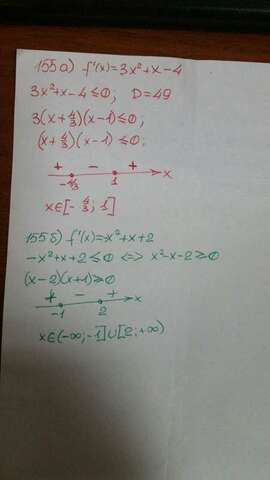 155а) f'(x)=3x²+x-4
3x²+x-4≤0; D=49
3(x+4/3)(x-1)≤0;
(x+4/3)(x-1)≤0;
+ - +
-4/3 1 x
x∈[-4/3; 1]
155б) f'(x)=x²+x+2
-x²+x+2≤0 <=> x²-x-2≥0
(x-2)(x+1)≥0
+ - +
-1 2 x
x∈(-∞;-1]∪[2;+∞)